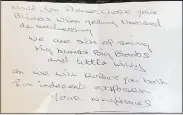 Would you Please close your
Blinds When getting Dressed
We are sick of seeing
big Bums Big Boobs
and little willy
or we will Report you both
for indecent exposure
Your neighbours